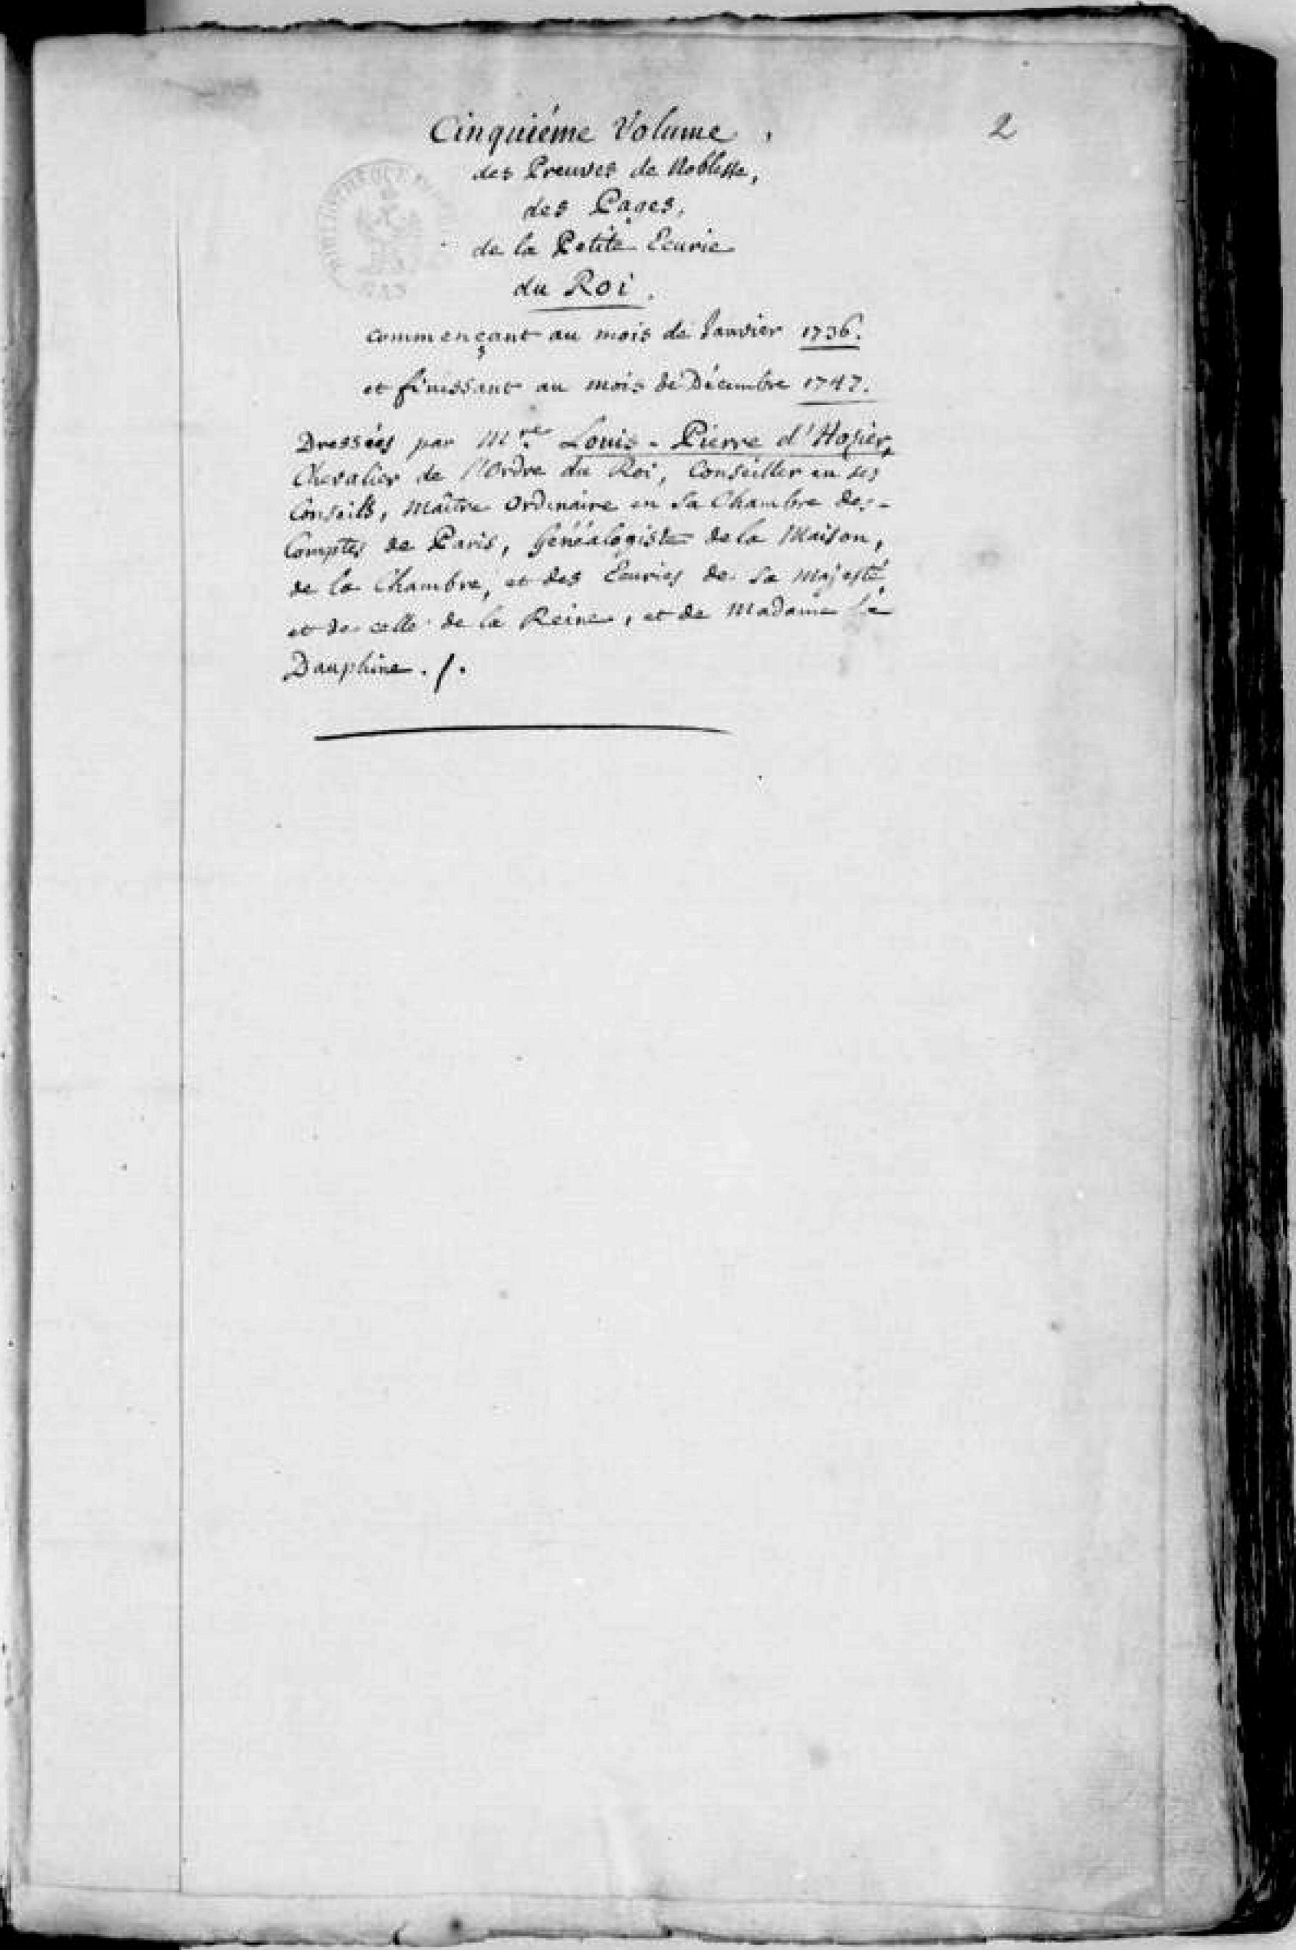 2
Cinquiéme Volume,
des Preuves de Noblesse,
des Pages,
de la Petite Ecurie
du Roi.
commençant au mois de Janvier 1736.
et finissant au mois de Décembre 1747.
Dressées par Mre. Louis-Pierre d'Hozier,
Chevalier de l'Ordre du Roi, Conseiller en ses
Conseils, Maître Ordinaire en Sa Chambre des-
Comptes de Paris, Généalogiste de la Maison,
de la Chambre, et des Ecuries de Sa Majesté,
et de celle de la Reine, et de Madame la
Dauphine. /.